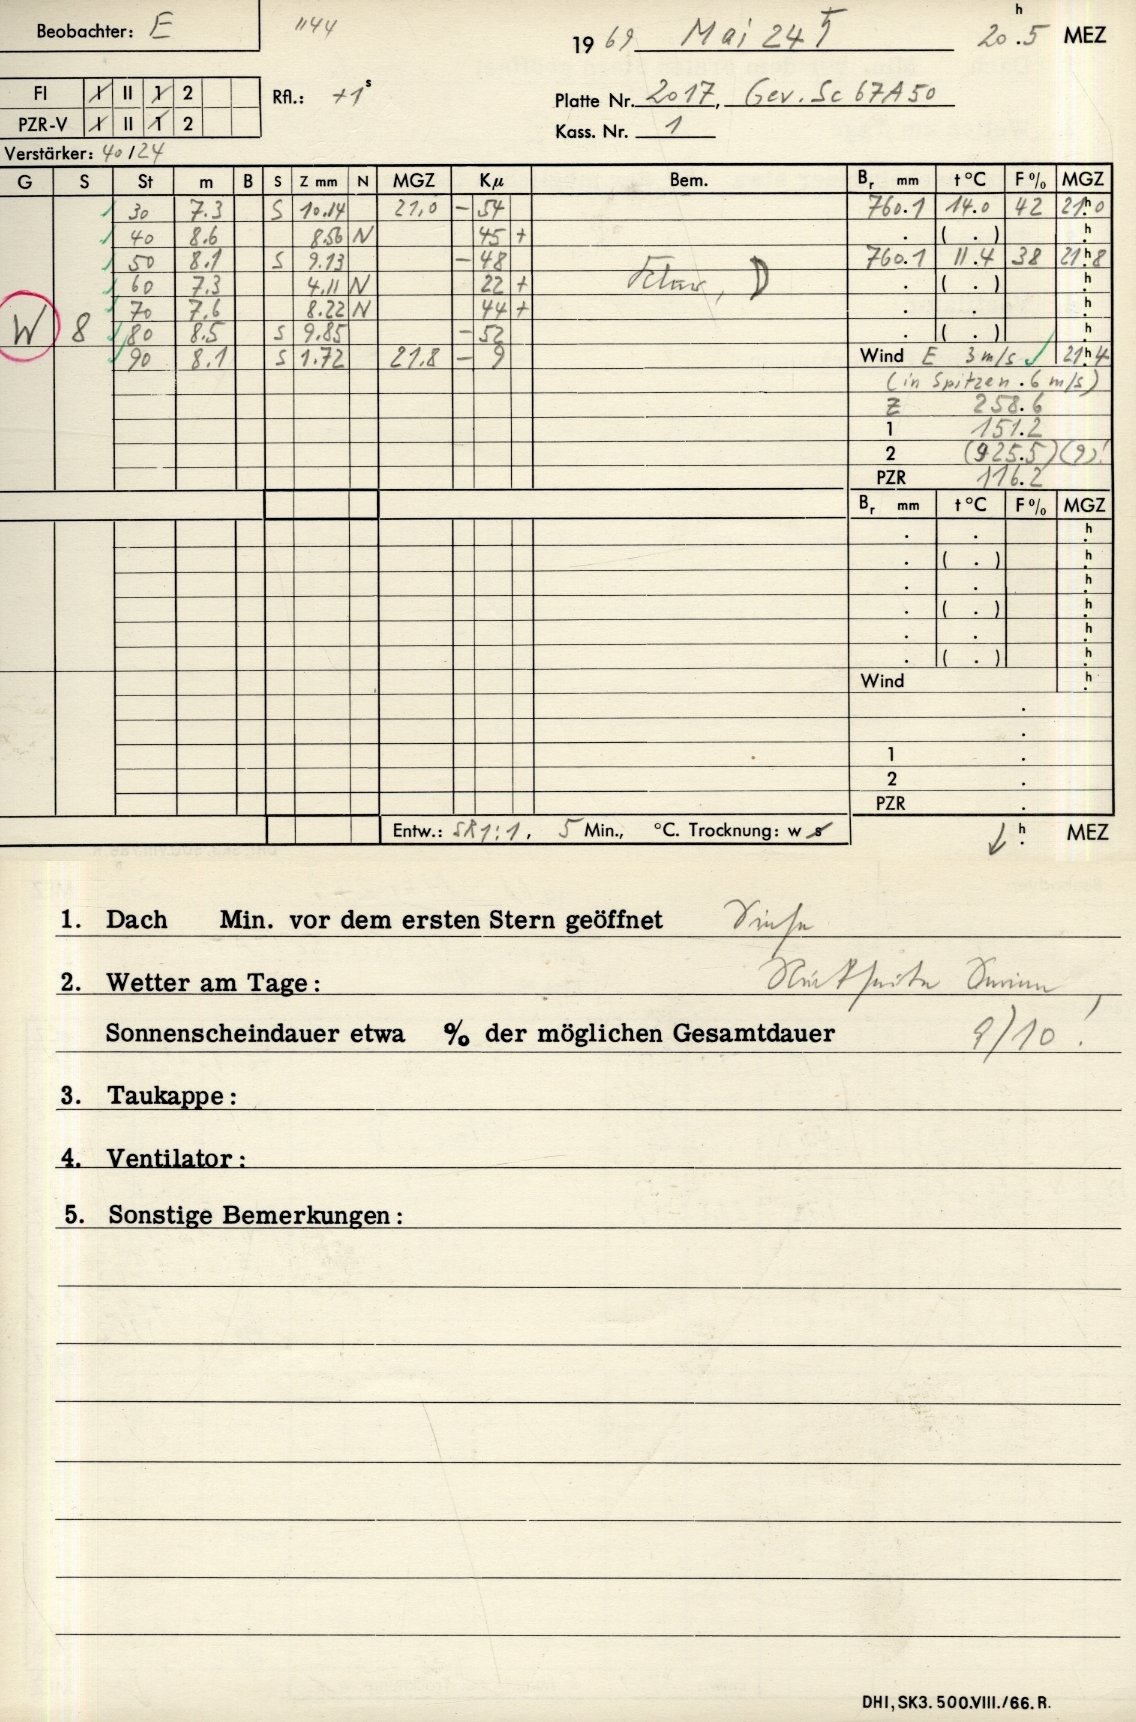 Beobachter: E
"44
1969 Mai 24
20.5 h MEZ
FI I II 1 2
PZR-V I II 1 2
Rfl.: +1 s
Platte Nr. 2017, Gev. Sc 67A50
Kass. Nr. 1
Verstärker: 40/24
G S St m B S Z mm N MGZ Kμ Bem. Br mm t °C F % MGZ
30 7.3 S 10.14 21.0 - 54 760.1 14.0 42 21 h 0
40 8.6 8.56 N 45 + . ( . ) h
50 8.1 S 9.13 - 48 760.1 11.4 38 21 h 8
60 7.3 4.11 N 22 + . ( . ) h
70 7.6 8.22 N 44 + . . h
W 8 80 8.5 S 9.85 - 52 . ( . ) h
90 8.1 S 1.72 21.8 - 9 Wind E 3 m/s 21 h 4
(in Spitzen . 6 m/s)
Z 258.6
1 151.2
2 (925.5) (9)!
PZR 116.2
Br mm t °C F % MGZ
. . h
. ( . ) h
. . h
. ( . ) h
. . h
. ( . ) h
Wind h
.
.
1 .
2 .
PZR .
Entw.: SR1:1, 5 Min., °C. Trocknung: w s
h MEZ
1. Dach Min. vor dem ersten Stern geöffnet
2. Wetter am Tage:
Sonnenscheindauer etwa % der möglichen Gesamtdauer 9/10 !
3. Taukappe:
4. Ventilator:
5. Sonstige Bemerkungen:
DHI, SK3. 500.VIII./66. R.